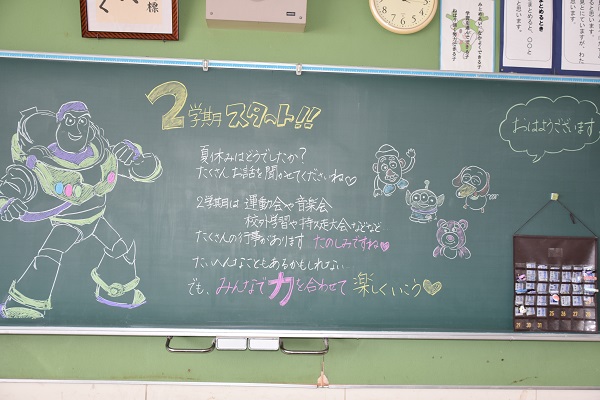 標
く
まとめるとき
2学期スタート!!
おはようございます
夏休みはどうでしたか?
たくさんお話を聞かせてくださいね♡
2学期は運動会や音楽会
校外学習や持久走大会などなど
たくさんの行事があります たのしみですね♡
たいへんなこともあるかもしれない
でも、みんなで力を合わせて楽しくいこう♡